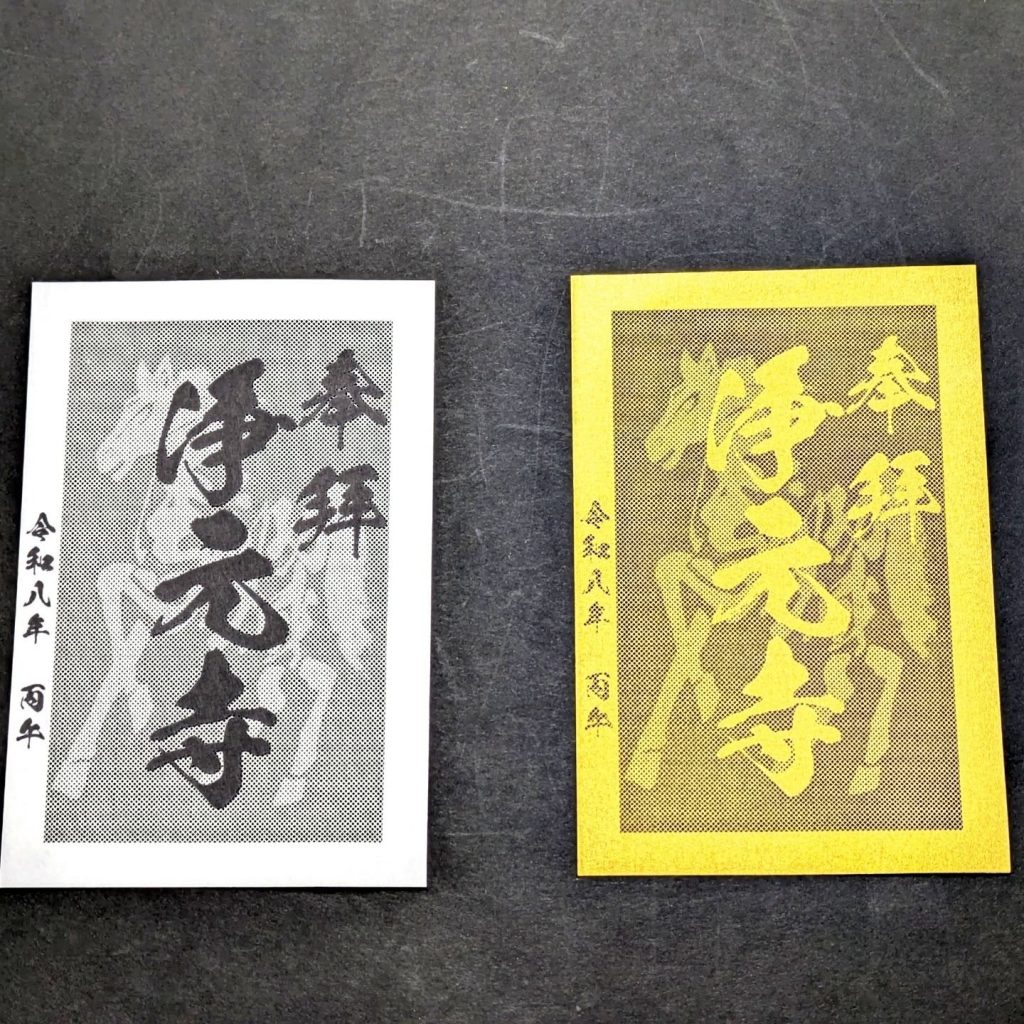 奉拝
浄元寺
令和八年 丙午
奉拝
浄元寺
令和八年 丙午